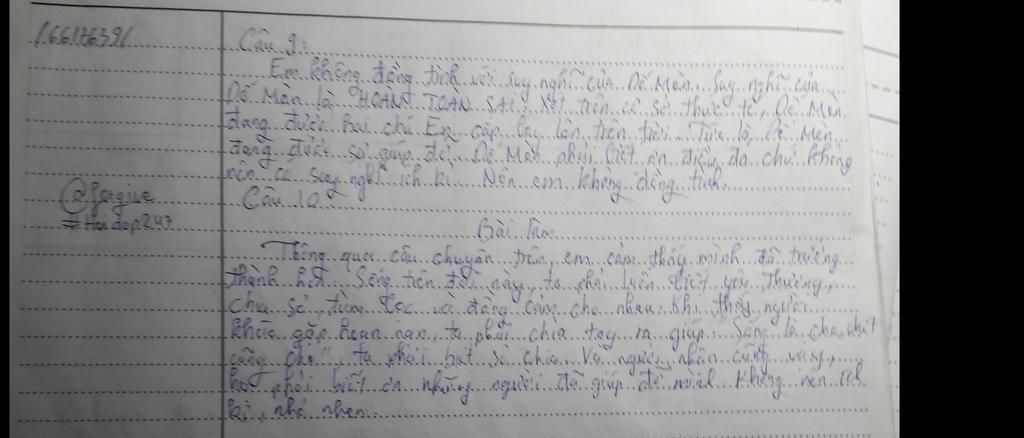 166176391
Câu 9:
Em không đồng tình với suy nghĩ của Dế Mèn. Suy nghĩ của
Dế Mèn là HOÀN TOÀN SAI. Xét trên cơ sở thực tế, Dế Mèn
đang được hai chú Én cặp bay lên trên trời. Tức là Dế Mèn
đang được sự giúp đỡ. Dế Mèn phải biết ơn điều đó chứ không
nên có suy nghĩ ích kỉ. Nên em không đồng tình.
@forgive
Câu 10
#Hoidap247
Bài làm
Thông qua câu chuyện trên, em cảm thấy mình đã trưởng
thành hơn. Sống trên đời này, ta phải luôn biết yêu thương,
chia sẻ, đùm bọc và đồng cảm cho nhau. Khi thấy người
khác gặp hoạn nạn, ta phải chìa tay ra giúp. "Sống là cho, chết
cũng cho", ta phải biết sẻ chia. Và người nhận cũng vậy,
họ phải biết ơn những người đã giúp đỡ mình. Không nên ích
kỉ, nhỏ nhen.